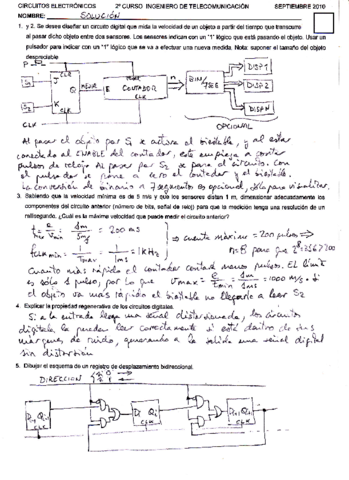 CIRCUITOS ELECTRÓNICOS 2º CURSO INGENIERO DE TELECOMUNICACIÓN SEPTIEMBRE 2010
NOMBRE: SOLUCIÓN
1. y 2. Se desea diseñar un circuito digital que mida la velocidad de un objeto a partir del tiempo que transcurre
al pasar dicho objeto entre dos sensores. Los sensores indican con un "1" lógico que está pasando el objeto. Usar un
pulsador para indicar con un "1" lógico que se va a efectuar una nueva medida. Nota: suponer el tamaño del objeto
despreciable
P
CLR
CLR
S1
J
ENABLE
CONTADOR
n
BIN/
7SEG
DISP1
DISP2
DISPN
S2
K
CLK
CLK
OPCIONAL
Al pasar el objeto por S1 se activa el biestable, y al estar
conectado al ENABLE del contador, este empieza a contar
pulsos de reloj. Al pasar por S2 se para el circuito. Con
el pulsador se pone a cero el contador y el biestable.
La conversión de binario a 7 segmentos es opcional, sólo para visualizar.
3. Sabiendo que la velocidad mínima es de 5 m/s y que los sensores distan 1 m, dimensionar adecuadamente los
componentes del circuito anterior (número de bits, señal de reloj) para que la medición tenga una resolución de un
milisegundo. ¿Cuál es la máxima velocidad que puede medir el circuito anterior?
t = e/Vmin = 1m/5m/s = 200 ms
⇒ cuenta máxima = 200 pulsos ⇒
n=8 para que 2^8=256>200
fCLKmin = 1/Tmax = 1/1ms = 1KHz
Cuanto más rápido el contador contará menos pulsos. El límite
es sólo 1 pulso, por lo que Vmax = e/Tmin = 1m/1ms = 1000 m/s. Si
el objeto va más rápido el biestable no llegaría a leer S2
4. Explicar la propiedad regenerativa de los circuitos digitales.
Si a la entrada llega una señal distorsionada, los circuitos
digitales la pueden leer correctamente si está dentro de sus
márgenes de ruido, generando a la salida una señal digital
sin distorsión
5. Dibujar el esquema de un registro de desplazamiento bidireccional.
DIRECCION
CLK
CLK
CLK